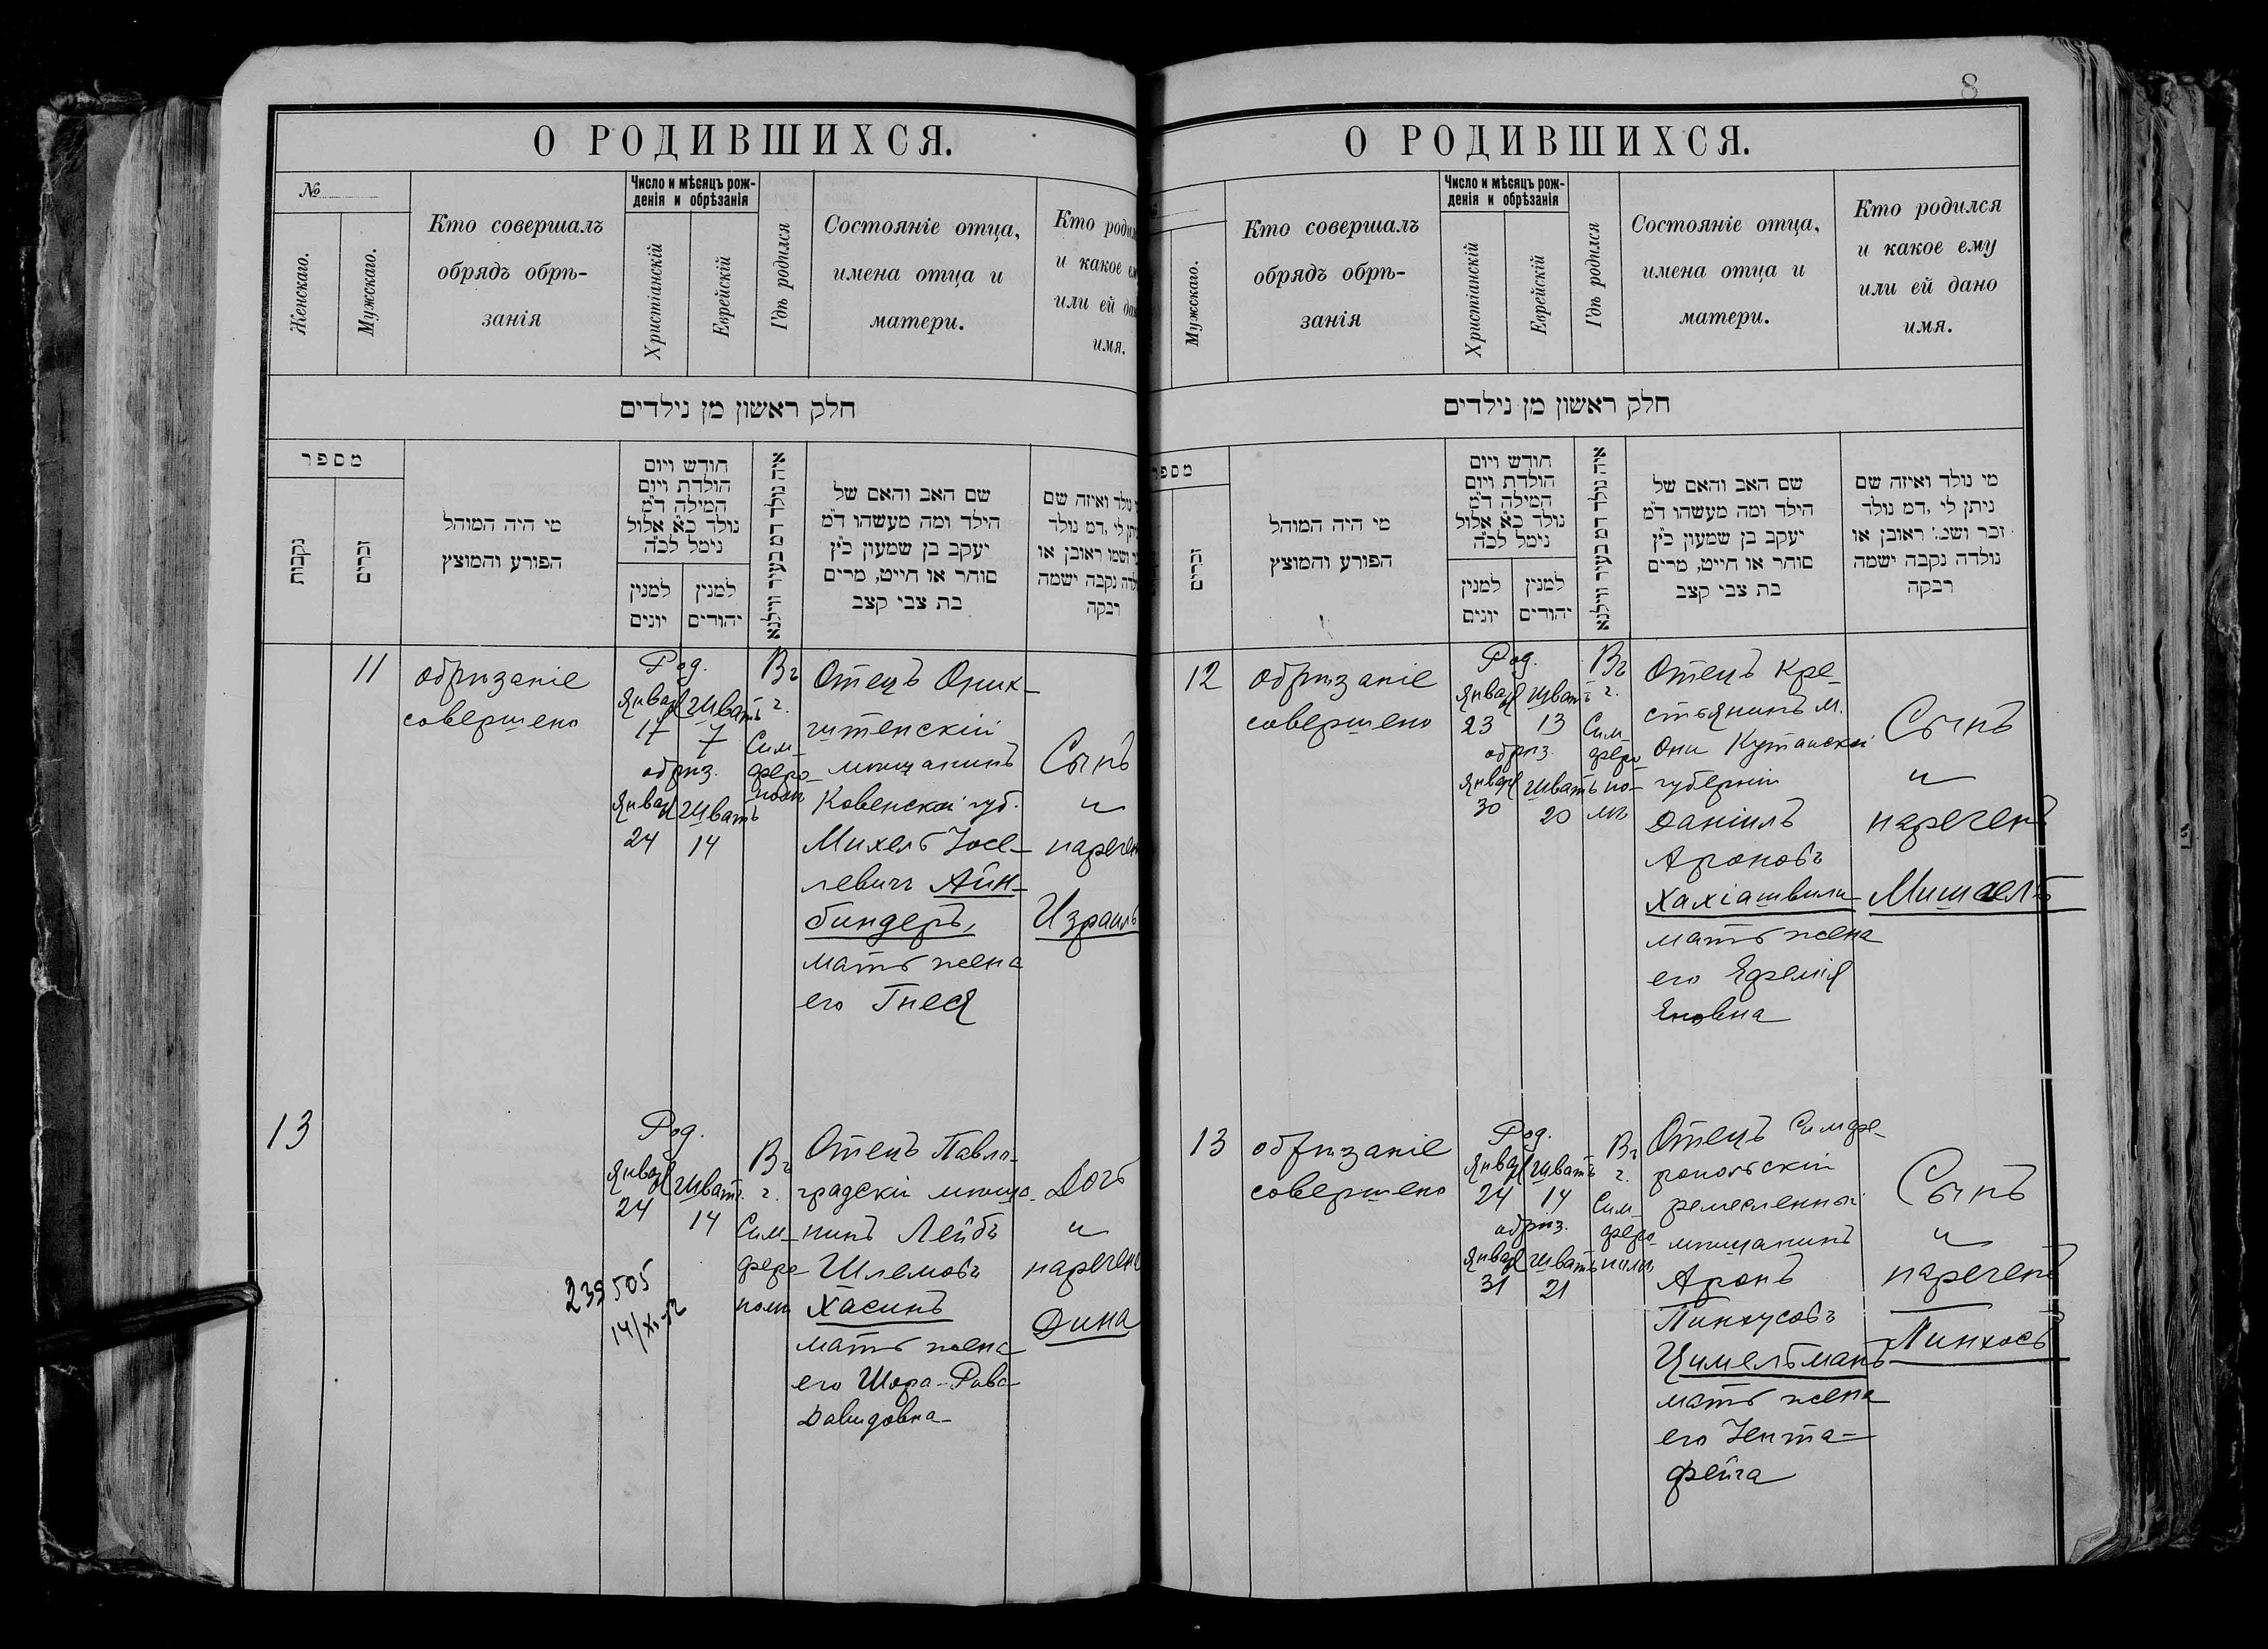 8
О РОДИВШИХСЯ.
№
Женскаго.
Мужскаго.
Кто совершалъ
обрядъ обрѣ-
занія
Число и мѣсяцъ рож-
денія и обрѣзанія
Христіанскій
Еврейскій
Гдѣ родился
Состояніе отца,
имена отца и
матери.
Кто родил
и какое ем
или ей дан
имя.
חלק ראשון מן נילדים
מספר
נקבות
זכרים
מי היה המוהל
הפורע והמוצץ
חודש ויום
הולדת ויום
המילה ד״מ
נולד כ״א אלול
נימל לכ״ה
למנין
יונים
למנין
יהודים
איה נולד דמ בעיר ווילנא
שם האב והאם של
הילד ומה מעשהו ד״מ
יעקב בן שמעון כ״ץ
סוחר או חייט, מרים
בת צבי קצב
נולד ואיזה שם
ד״מ נולד
ושמו ראובן או
נקבה ישמה
רבקה
11
обрѣзаніе
совершено
Род.
Январ Шватъ
17 7
обрѣз.
Январ Шватъ
24 14
Въ
г.
Сим-
феро-
полѣ
Отецъ Оник-
штенскій
мѣщанинъ
Ковенской губ.
Михель Іосе-
левичъ Айн-
биндеръ,
мать жена
его Гнеся
Сынъ
и
наречен
Израиль
13
Род.
Январ Шватъ
24 14
Въ
г.
Сим-
феро-
полѣ
239505
14/XI-52
Отецъ Павло-
градскій мѣща-
нинъ Лейбъ
Шлемовъ
Хасинъ
мать жена
его Шора-Рива
Давидовна
Дочь
и
наречена
Дина
О РОДИВШИХСЯ.
Мужскаго.
Кто совершалъ
обрядъ обрѣ-
занія
Число и мѣсяцъ рож-
денія и обрѣзанія
Христіанскій
Еврейскій
Гдѣ родился
Состояніе отца,
имена отца и
матери.
Кто родился
и какое ему
или ей дано
имя.
חלק ראשון מן נילדים
מספר
זכרים
מי היה המוהל
הפורע והמוצץ
חודש ויום
הולדת ויום
המילה ד״מ
נולד כ״א אלול
נימל לכ״ה
למנין
יונים
למנין
יהודים
איה נולד דמ בעיר ווילנא
שם האב והאם של
הילד ומה מעשהו ד״מ
יעקב בן שמעון כ״ץ
סוחר או חייט, מרים
בת צבי קצב
מי נולד ואיזה שם
ניתן לי ,דמ נולד
זכר ושמ׳ ראובן או
נולדה נקבה ישמה
רבקה
12
обрѣзаніе
совершено
Род.
Январ Шватъ
23 13
обрѣз.
Январ Шватъ
30 20
Въ
г.
Сим-
феро-
по-
лѣ
Отецъ Кре-
стьянинъ м.
Они Кутаиской
губерніи
Даніилъ
Ароновъ
Хахіашвили
мать жена
его Ефемія
Яновна
Сынъ
и
нареченъ
Мишаель
13
обрѣзаніе
совершено
Род.
Январ Шватъ
24 14
обрѣз.
Январ Шватъ
31 21
Въ
г.
Сим-
феро-
полѣ
Отецъ Симфе-
ропольскій
ремесленный
мѣщанинъ
Аронъ
Пинхусовъ
Цимельманъ
мать жена
его Гента-
Фейга
Сынъ
и
нареченъ
Пинхосъ